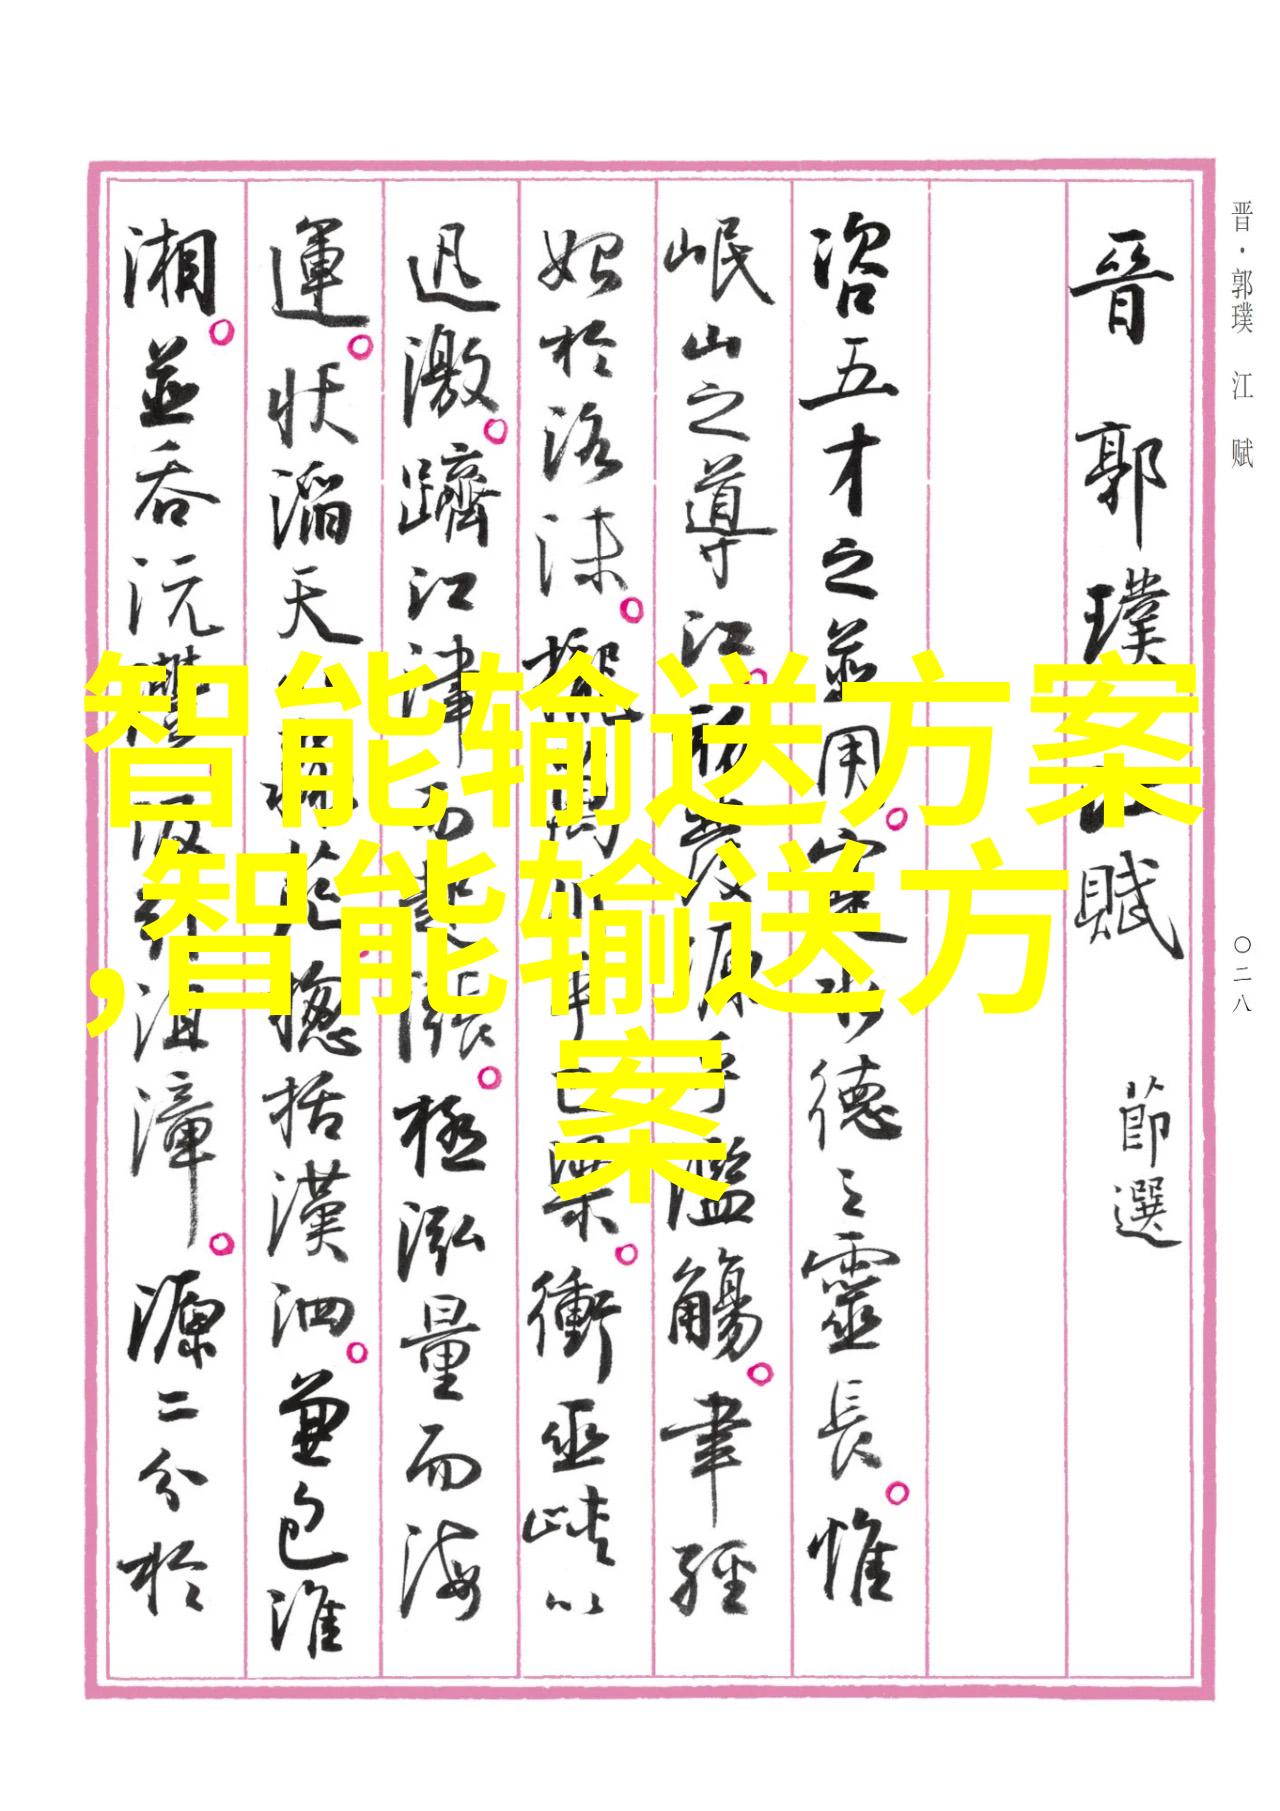 晋·郭璞 江 赋
〇二八
晉 郭 璞 江 賦 節選
咨五才之並用。寔水德之靈長。惟
岷山之導江。初發源乎濫觴。聿經
始於洛沬。攏萬川乎巴梁。衝巫峽以
迅激。躋江津而起漲。極泓量而海
運。狀滔天以淼茫。揔括漢泗。兼包淮
湘。並吞沅澧。汲引沮漳。源二分於
智能输送方案
,智能输送方
案